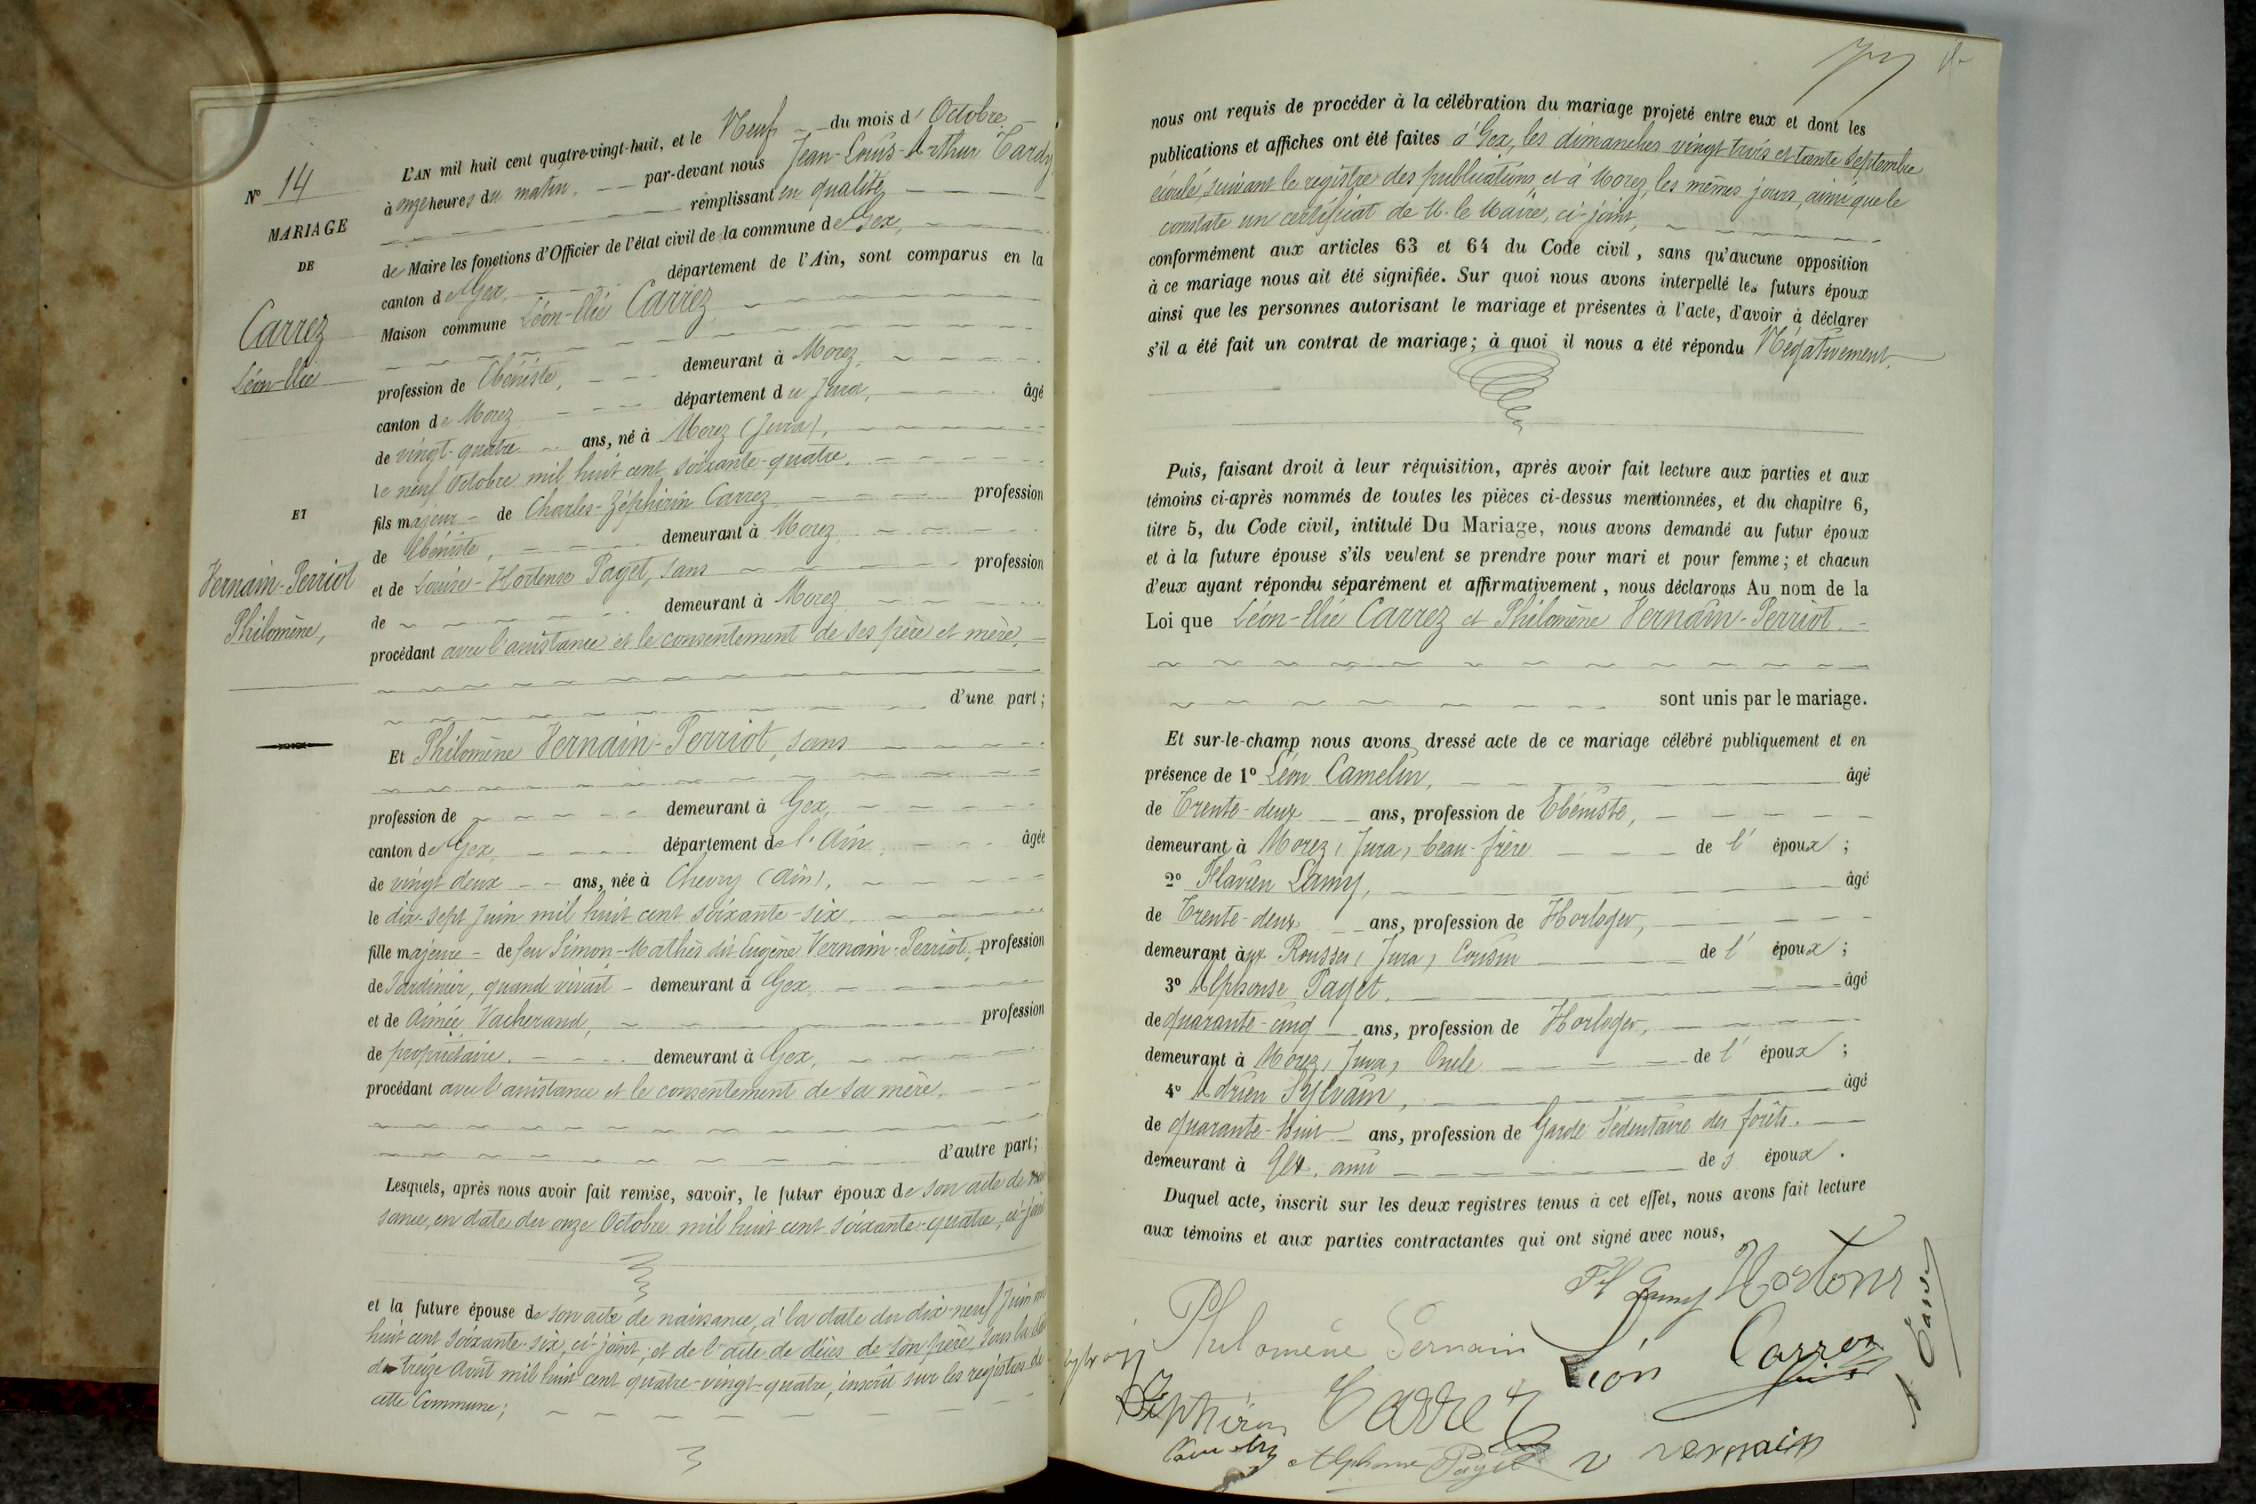 N° 14
MARIAGE
DE
Carrez
Léon-Elie
ET
Vernain-Perriot
Philomène,
L'AN mil huit cent quatre-vingt-huit, et le Neuf du mois d'Octobre
à onze heures du matin. par-devant nous Jean-Louis-Arthur Tardy,
remplissant en qualité
de Maire les fonctions d'Officier de l'état civil de la commune de Gex,
canton de Gex, département de l'Ain, sont comparus en la
Maison commune Léon-Elie Carrez
profession de Ebéniste, demeurant à Morez,
canton de Morez département du Jura, âgé
de vingt-quatre ans, né à Morez (Jura),
le neuf Octobre mil huit cent soixante-quatre.
fils majeur de Charles-Zéphirin Carrez profession
de Ebéniste, demeurant à Morez
et de Louise-Hortense Paget, sans profession
de demeurant à Morez
procédant avec l'assistance et le consentement de ses père et mère,
d'une part;
Et Philomène Vernain-Perriot, sans
profession de demeurant à Gex,
canton de Gex, département de l'Ain, âgée
de vingt deux ans, née à Chevry (Ain),
le dix-sept Juin mil huit cent soixante-six.
fille majeure de feu Simon-Mathieu dit Eugène Vernain-Perriot, profession
de Jardinier, quand vivait demeurant à Gex
et de Aimée Vacherand, profession
de propriétaire. demeurant à Gex,
procédant avec l'assistance et le consentement de sa mère.
d'autre part;
Lesquels, après nous avoir fait remise, savoir, le futur époux de son acte de nais
sance, en date du onze Octobre mil huit cent soixante-quatre, ci-joint
et la future épouse de son acte de naissance, à la date du dix-neuf Juin mil
huit cent soixante-six, ci-joint, et de l'acte de décès de son père, sous la date
du treize Août mil huit cent quatre-vingt-quatre, inscrit sur les registres de
cette Commune;
nous ont requis de procéder à la célébration du mariage projeté entre eux et dont les
publications et affiches ont été faites à Gex, les dimanches vingt trois et trente Septembre
écoulé, suivant le registre des publications, et à Morez, les mêmes jours, ainsi que le
constate un certificat de M. le Maire, ci-joint,
conformément aux articles 63 et 64 du Code civil, sans qu'aucune opposition
à ce mariage nous ait été signifiée. Sur quoi nous avons interpellé les futurs époux
ainsi que les personnes autorisant le mariage et présentes à l'acte, d'avoir à déclarer
s'il a été fait un contrat de mariage; à quoi il nous a été répondu Négativement.
Puis, faisant droit à leur réquisition, après avoir fait lecture aux parties et aux
témoins ci-après nommés de toutes les pièces ci-dessus mentionnées, et du chapitre 6,
titre 5, du Code civil, intitulé Du Mariage, nous avons demandé au futur époux
et à la future épouse s'ils veulent se prendre pour mari et pour femme; et chacun
d'eux ayant répondu séparément et affirmativement, nous déclarons Au nom de la
Loi que Léon-Elie Carrez et Philomène Vernain-Perriot
sont unis par le mariage.
Et sur-le-champ nous avons dressé acte de ce mariage célébré publiquement et en
présence de 1° Léon Camelin, âgé
de Trente-deux ans, profession de Ebéniste,
demeurant à Morez, Jura, beau-frère de l'époux;
2° Flavien Lamy, âgé
de Trente-deux ans, profession de Horloger,
demeurant aux Rousses, Jura, Cousin de l'époux;
3° Alphonse Paget. âgé
de quarante-cinq ans, profession de Horloger,
demeurant à Morez, Jura, Oncle de l'époux;
4° Adrien Sylvain, âgé
de quarante-huit ans, profession de Garde Sédentaire des forêts.
demeurant à Gex, ami des époux.
Duquel acte, inscrit sur les deux registres tenus à cet effet, nous avons fait lecture
aux témoins et aux parties contractantes qui ont signé avec nous,
Fl Lamy Hortens
Philomène Vernain Léon Carrez
Zéphirin Carrez
Alphonse Paget v vernain